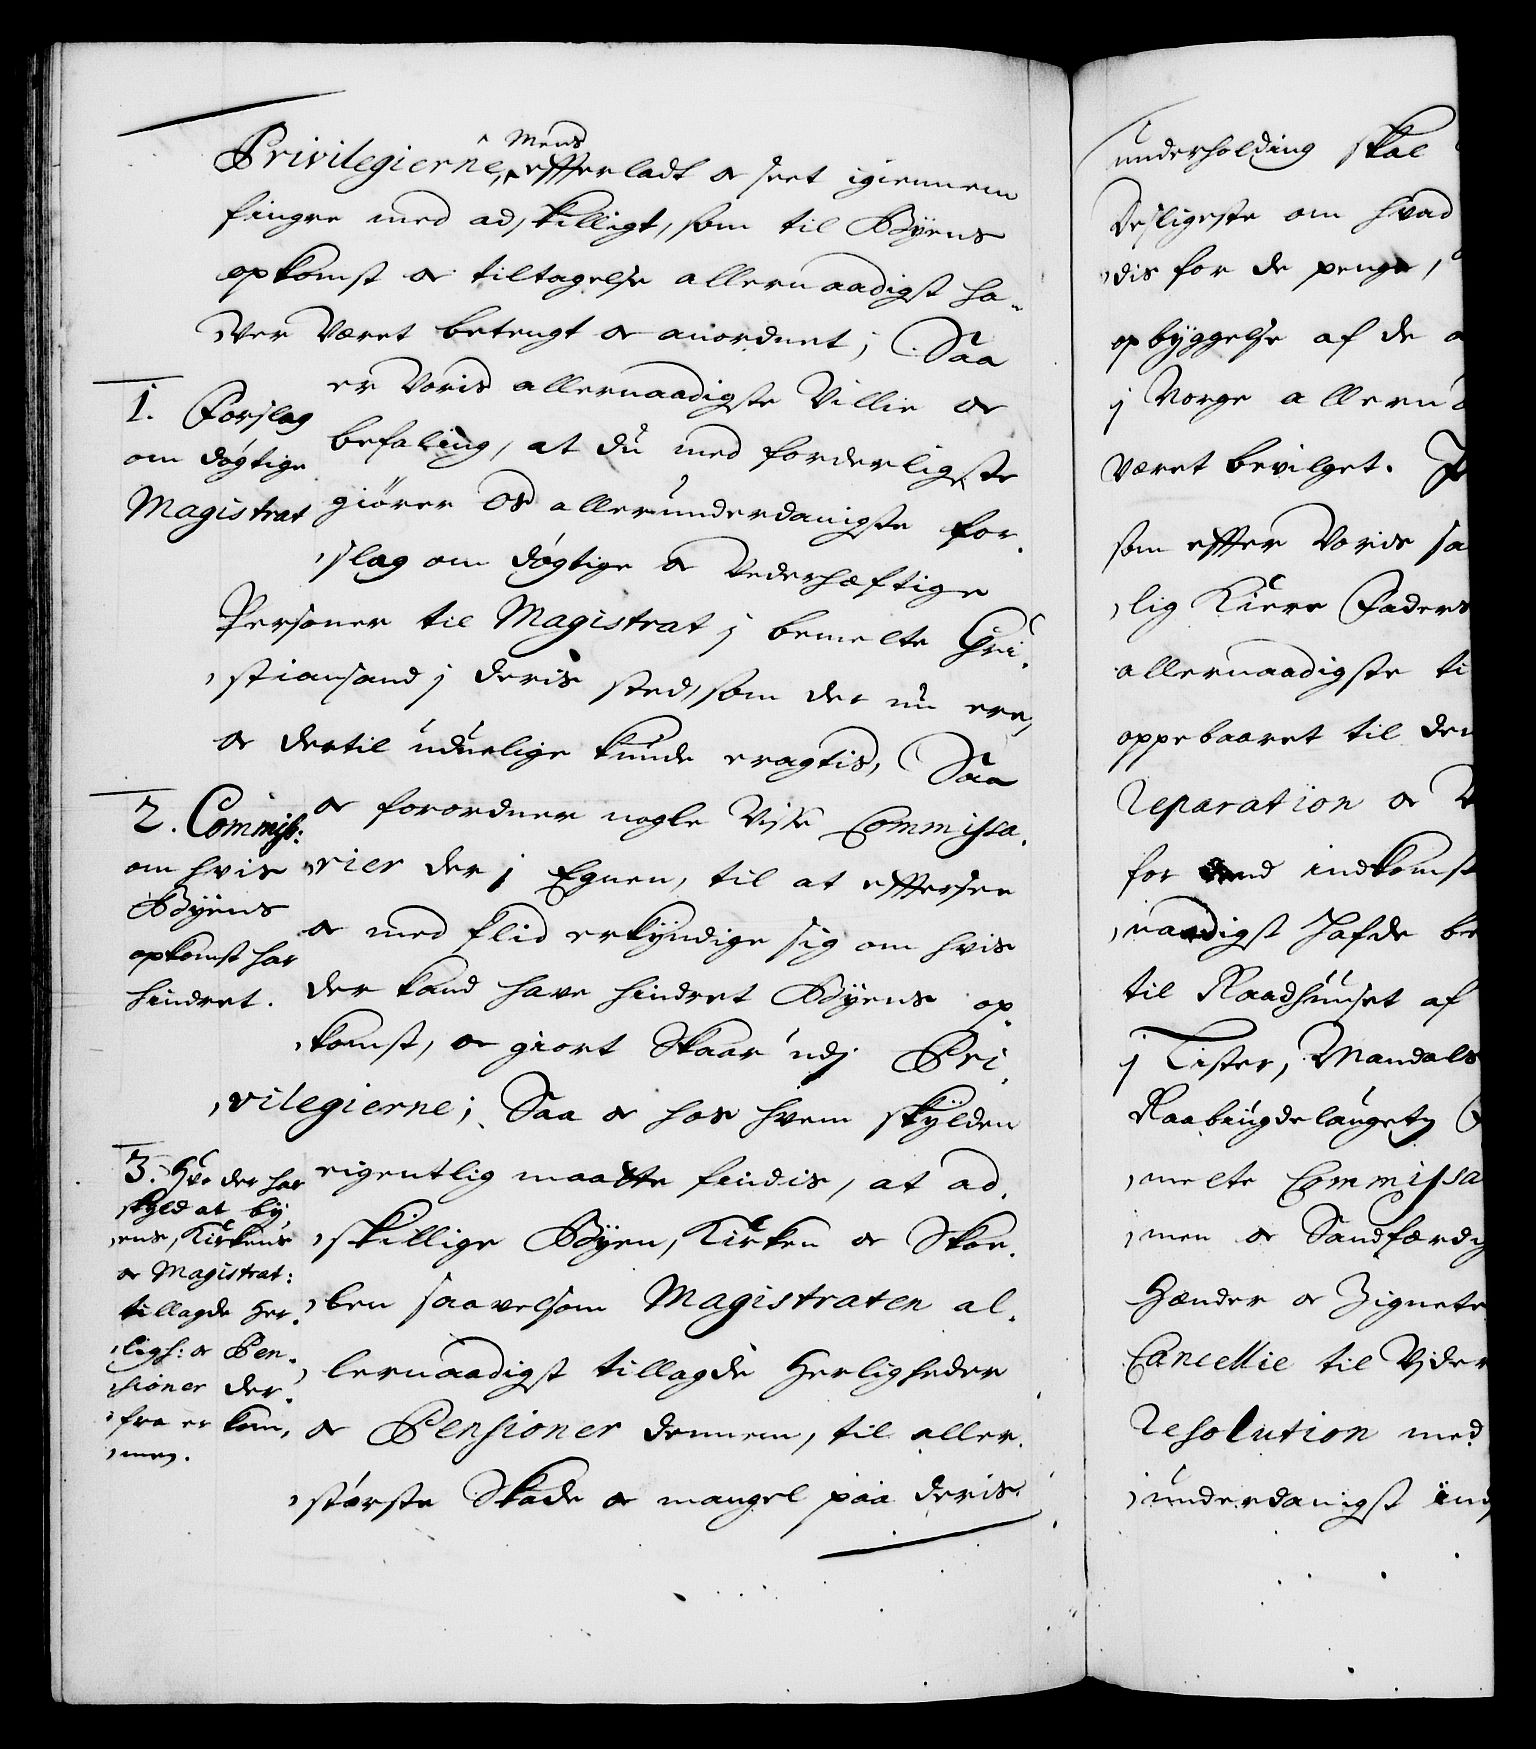 Mens
Privilegierne, effterladt oc seet igiennem
fingre med adskilligt, som til Byens
opkomst oc tiltagelse allernaadigst ha-
ver Været betengt oc anordnet; Saa
er Voris allernaadigste Villie oc
befaling, at du med forderligste
giører Os allerunderdanigste for-
slag om døgtige oc Vederhæftige
Personer til Magistrat j bemelte Chri-
stiansand j deris sted, som der nu ere,
oc dertil uduelige kunde eragtis, Saa
oc forordner nogle Visse Commissa-
rier der j Egnen, til at efftersee
oc med flid erkyndige sig om hvis
der kand have hindret Byens op-
komst, oc giort Skaar udj Pri-
vilegierne; Saa oc hos hvem skylden
eigentlig maatte findis, at ad-
skillige Byen, Kirken oc Skoe-
len saavelsom Magistraten al-
lernaadigst tillagde Herligheder
oc Pensioner dennem, til aller-
største Skade oc mangel paa deris
1. Forslag
om døgtige
Magistrat
2. Commiss:
om hvis
Byens
opkomst har
hindret.
3. Hvo der har
skyld at by
ens, Kirkens
oc Magistrat:
tillagde Her-
ligh: oc Pen-
sioner der-
fra er kom-
men.
underholding skal
Desligeste om hvad
dis for de penge,
opbyggelse af de
j Norge allern
Været bevilget.
som effter Voris sa
lig Kiere Faders
allernaadigste ti
oppebaaret til den
Reparation oc
for dend indkomst
naadigst Hafde be
til Raadhuuset af
j Lister, Mandals
Raabiugdelauget
melte Commissa
men oc Sandfærdig
Hænder oc Zignete
Cancellie til Vider
Resolution med
underdanigst ind